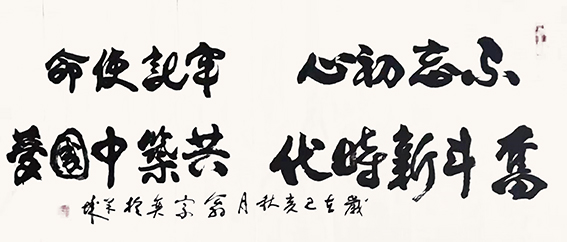 不忘初心 牢記使命
奮斗新時代 共築中國夢
歲在己亥秋月翁宗於羊城